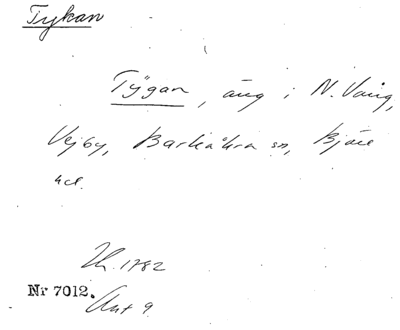 Tykan
Tygan, äng i N. Vång,
Vejby, Barkåkra sn, Bjäre
hd.
Lh. 1782
Nr 7012.
Akt 9